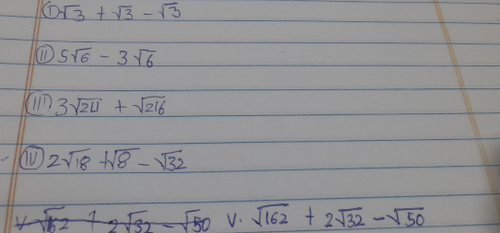 I) √3 + √3 − √3
II) 5√6 − 3√6
III) 3√24 + √216
IV) 2√18 + √8 − √32
V √162 + 2√32 − √50 V. √162 + 2√32 − √50